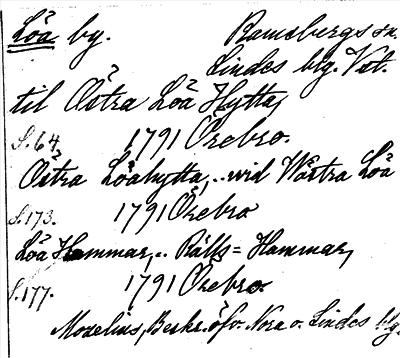 Löa by. Ramsbergs sn.
Lindes btg. Vst.
til Östra Löa Hytta,
S. 64. 1791 Örebro.
Östra Löahytta, .. wid Wästra Löa
S. 173. 1791 Örebro
Löa Hammar, .. Rälls = Hammar,
S. 177. 1791 Örebro.
Moxelius, Beskr. öfver Nora o. Lindes btg.